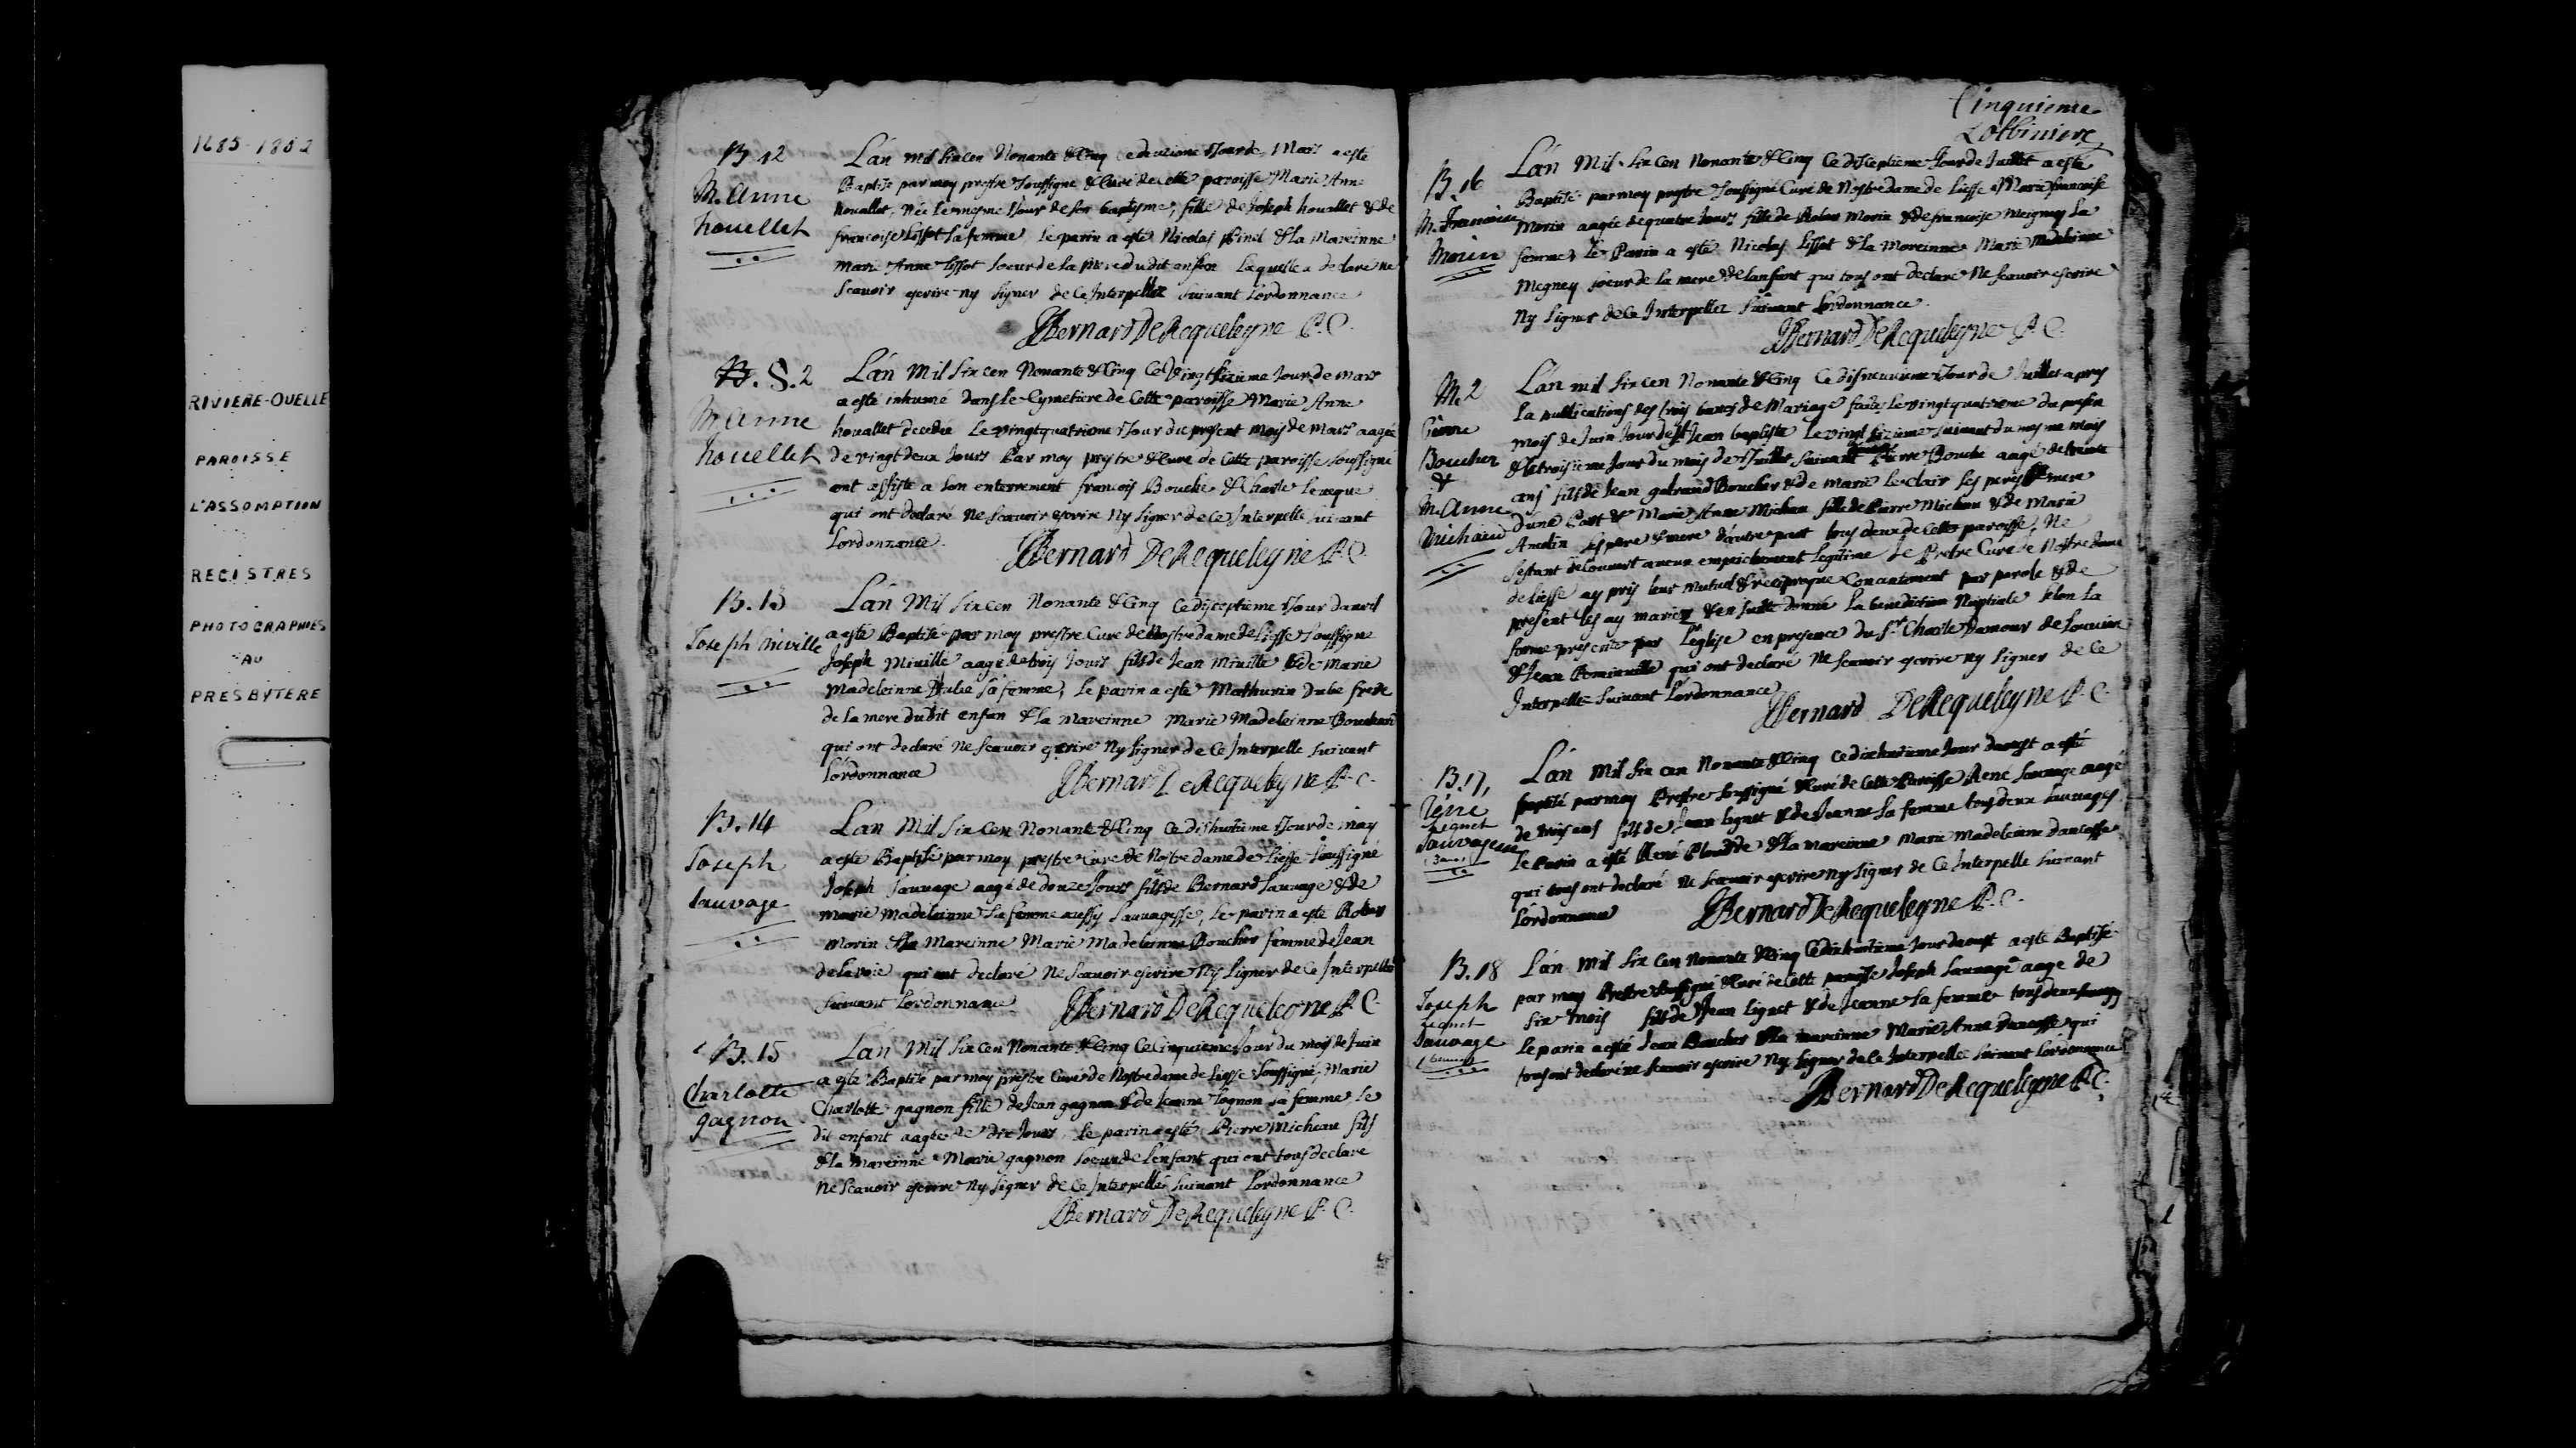 1685-1852
RIVIERE-OUELLE
PAROISSE
L'ASSOMPTION
REGISTRES
PHOTOGRAPHIES
AU
PRESBYTERE
B. 12
M. Anne
houellet
Lan mil six cen Nonante & Cinq ce deuxieme Jour de Mars a esté
Baptisé par moy prestre soussigné & Curé de cette paroisse Marie Anne
houallet, Née le mesme Jour de son baptesme, fille de Joseph houallet & de
francoise Lissot sa femme, le parin a esté Nicolas Pinel & la Mareinne
Marie Anne Lissot soeur de la Mere dudit enfan laquelle a declaré ne
scauoir escrire ny signer de ce Interpellé suiuant Lordonnance
Bernard DeRequeleyne P. C.
B. S. 2
M. anne
houellet
Lan Mil six cen Nonante & Cinq ce vingt sixieme Jour de mars
a esté inhumé dans le Cymetiere de Cette paroisse Marie Anne
houallet decedée le vingt quatrieme Jour du present mois de mars aagée
de vingt deux Jours Par moy prestre & Curé de Cette paroisse soussigné
ont assisté a son enterrement francois Bouche & Charle leueque
qui ont declaré Ne scauoir escrire Ny signer de ce Interpellé suiuant
Lordonnance.
Bernard DeRequeleyne P. C.
B. 13
Joseph Miville
Lan Mil six cen Nonante & Cinq ce diseptieme Jour dauril
a esté Baptisé par moy prestre Curé de Nostre dame de Liesse soussigné
Joseph Miuille aagé de trois Jours fils de Jean miuille & de Marie
Madeleinne Dube sa femme, le parin a esté Mathurin Dube frere
de la mere dudit enfan & la mareinne Marie Madeleinne Bouchard
qui ont declaré Ne scauoir escrire Ny signer de ce Interpellé suiuant
Lordonnance
Bernard DeRequeleyne P. C.
B. 14
Joseph
sauvage
Lan Mil six Cen Nonante & Cinq ce dishuitieme Jour de may
a esté Baptisé par moy prestre Curé de Nostre dame de Liesse soussigné
Joseph sauuage aagé de douze Jours fils de Bernard sauuage & de
marie madeleinne sa femme aussy sauuagesse, le parin a esté Rober
Morin & la Mareinne Marie Madeleinne Boucher femme de Jean
delavoie qui ont declaré Ne scauoir escrire Ny signer de ce Interpellé
suiuant Lordonnance
Bernard DeRequeleyne P. C.
B. 15
Charlotte
gagnon
Lan Mil six Cen Nonante & Cinq ce Cinquieme Jour du mois de Juin
a esté Baptisé par moy prestre Curé de Nostre dame de Liesse soussigné, Marie
Charlotte gagnon fille de Jean gagnon & de Jeanne Lognon sa femme le
dit enfant aagée de dix Jours, le parin a esté Pierre Micheau fils
& la mareinne Marie gagnon soeur de lenfant qui ont tous declaré
Ne scauoir escrire Ny signer de ce Interpellé suiuant Lordonnance
Bernard DeRequeleyne P. C.
Cinquieme
Lotbiniere
B. 16
M. Francoise
Morin
Lan Mil six Cen Nonante & Cinq ce diseptieme Jour de Juillet a esté
Baptisé par moy prestre soussigné Curé de Nostre dame de Liesse Marie francoise
Morin aagée de quatre Jours fille de Rober Morin & de francoise Meigney sa
femme, le Parin a esté Nicolas Lissot & la Mareinne Marie Madeleinne
Megney soeur de la mere de lanfant qui tous ont declaré Ne scauoir escrire
Ny signer de ce Interpellez suiuant Lordonnance.
Bernard DeRequeleyne P. C.
M. 2
Pierre
Boucher
&
M. Anne
Michaud
Lan mil six cen Nonante & Cinq ce disneuuieme Jour de Juillet apres
la publications des trois bancs de Mariage faite le vingt quatrieme du
mois de Juin Jour de St Jean baptiste le vingt sixieme suiuant du mesme mois
& le troisieme Jour du mois de Juillet suiuant Pierre Bouche aagé de trente
ans fils de Jean galerand Boucher & de marie Leclair ses pere & mere
dune Part & Marie Anne Michau fille de Pierre Michau & de Marie
Ancelin ses pere & mere dautre part tous deux de Cette paroisse, Ne
sestant decouuert aucun empeschement Legitime Je Pretre Curé de Nostre dame
de Liesse ay pris leur mutuel & reciproque Consentement par parole & de
present les ay mariez & en suitte donné la benediction Nuptiale selon la
forme prescrite par Leglise en presence du Sr Charle Damour de Louuiere
& Jean qui ont declaré Ne scauoir escrire ny signer de ce
Interpellé suiuant Lordonnance
Bernard DeRequeleyne P. C.
B. 17,
Réné
Lignet
sauvagesse
3 ans
Lan Mil six cen Nonante & Cinq ce dixhuitieme Jour daoust a esté
baptisé par moy Prestre soussigné & Curé de Cette Paroisse René sauuage aagé
de trois ans fils de Jean Lignet & de Jeanne sa femme tous deux sauuages
le Parin a esté René Plourde & la mareinne Marie Madeleinne dancosse
qui tous ont declaré Ne scauoir escrire ny signer de Ce Interpelle suiuant
Lordonnance
Bernard DeRequeleyne P. C.
B. 18
Joseph
Lignet
Sauvage
Lan Mil six Cen nonante & Cinq ce dixhuitieme Jour daoust a esté Baptisé
par moy Prestre soussigné & Curé de Cette paroisse Joseph sauuage aage de
six mois fils de Jean Lignet & de Jeanne sa femme tous deux sauuages
le parin a esté Jean Boucher & la mareinne Marie Anne dancosse qui
tous ont declaré ne scauoir escrire Ny signer de ce Interpellé suiuant Lordonnance
Bernard DeRequeleyne P. C.